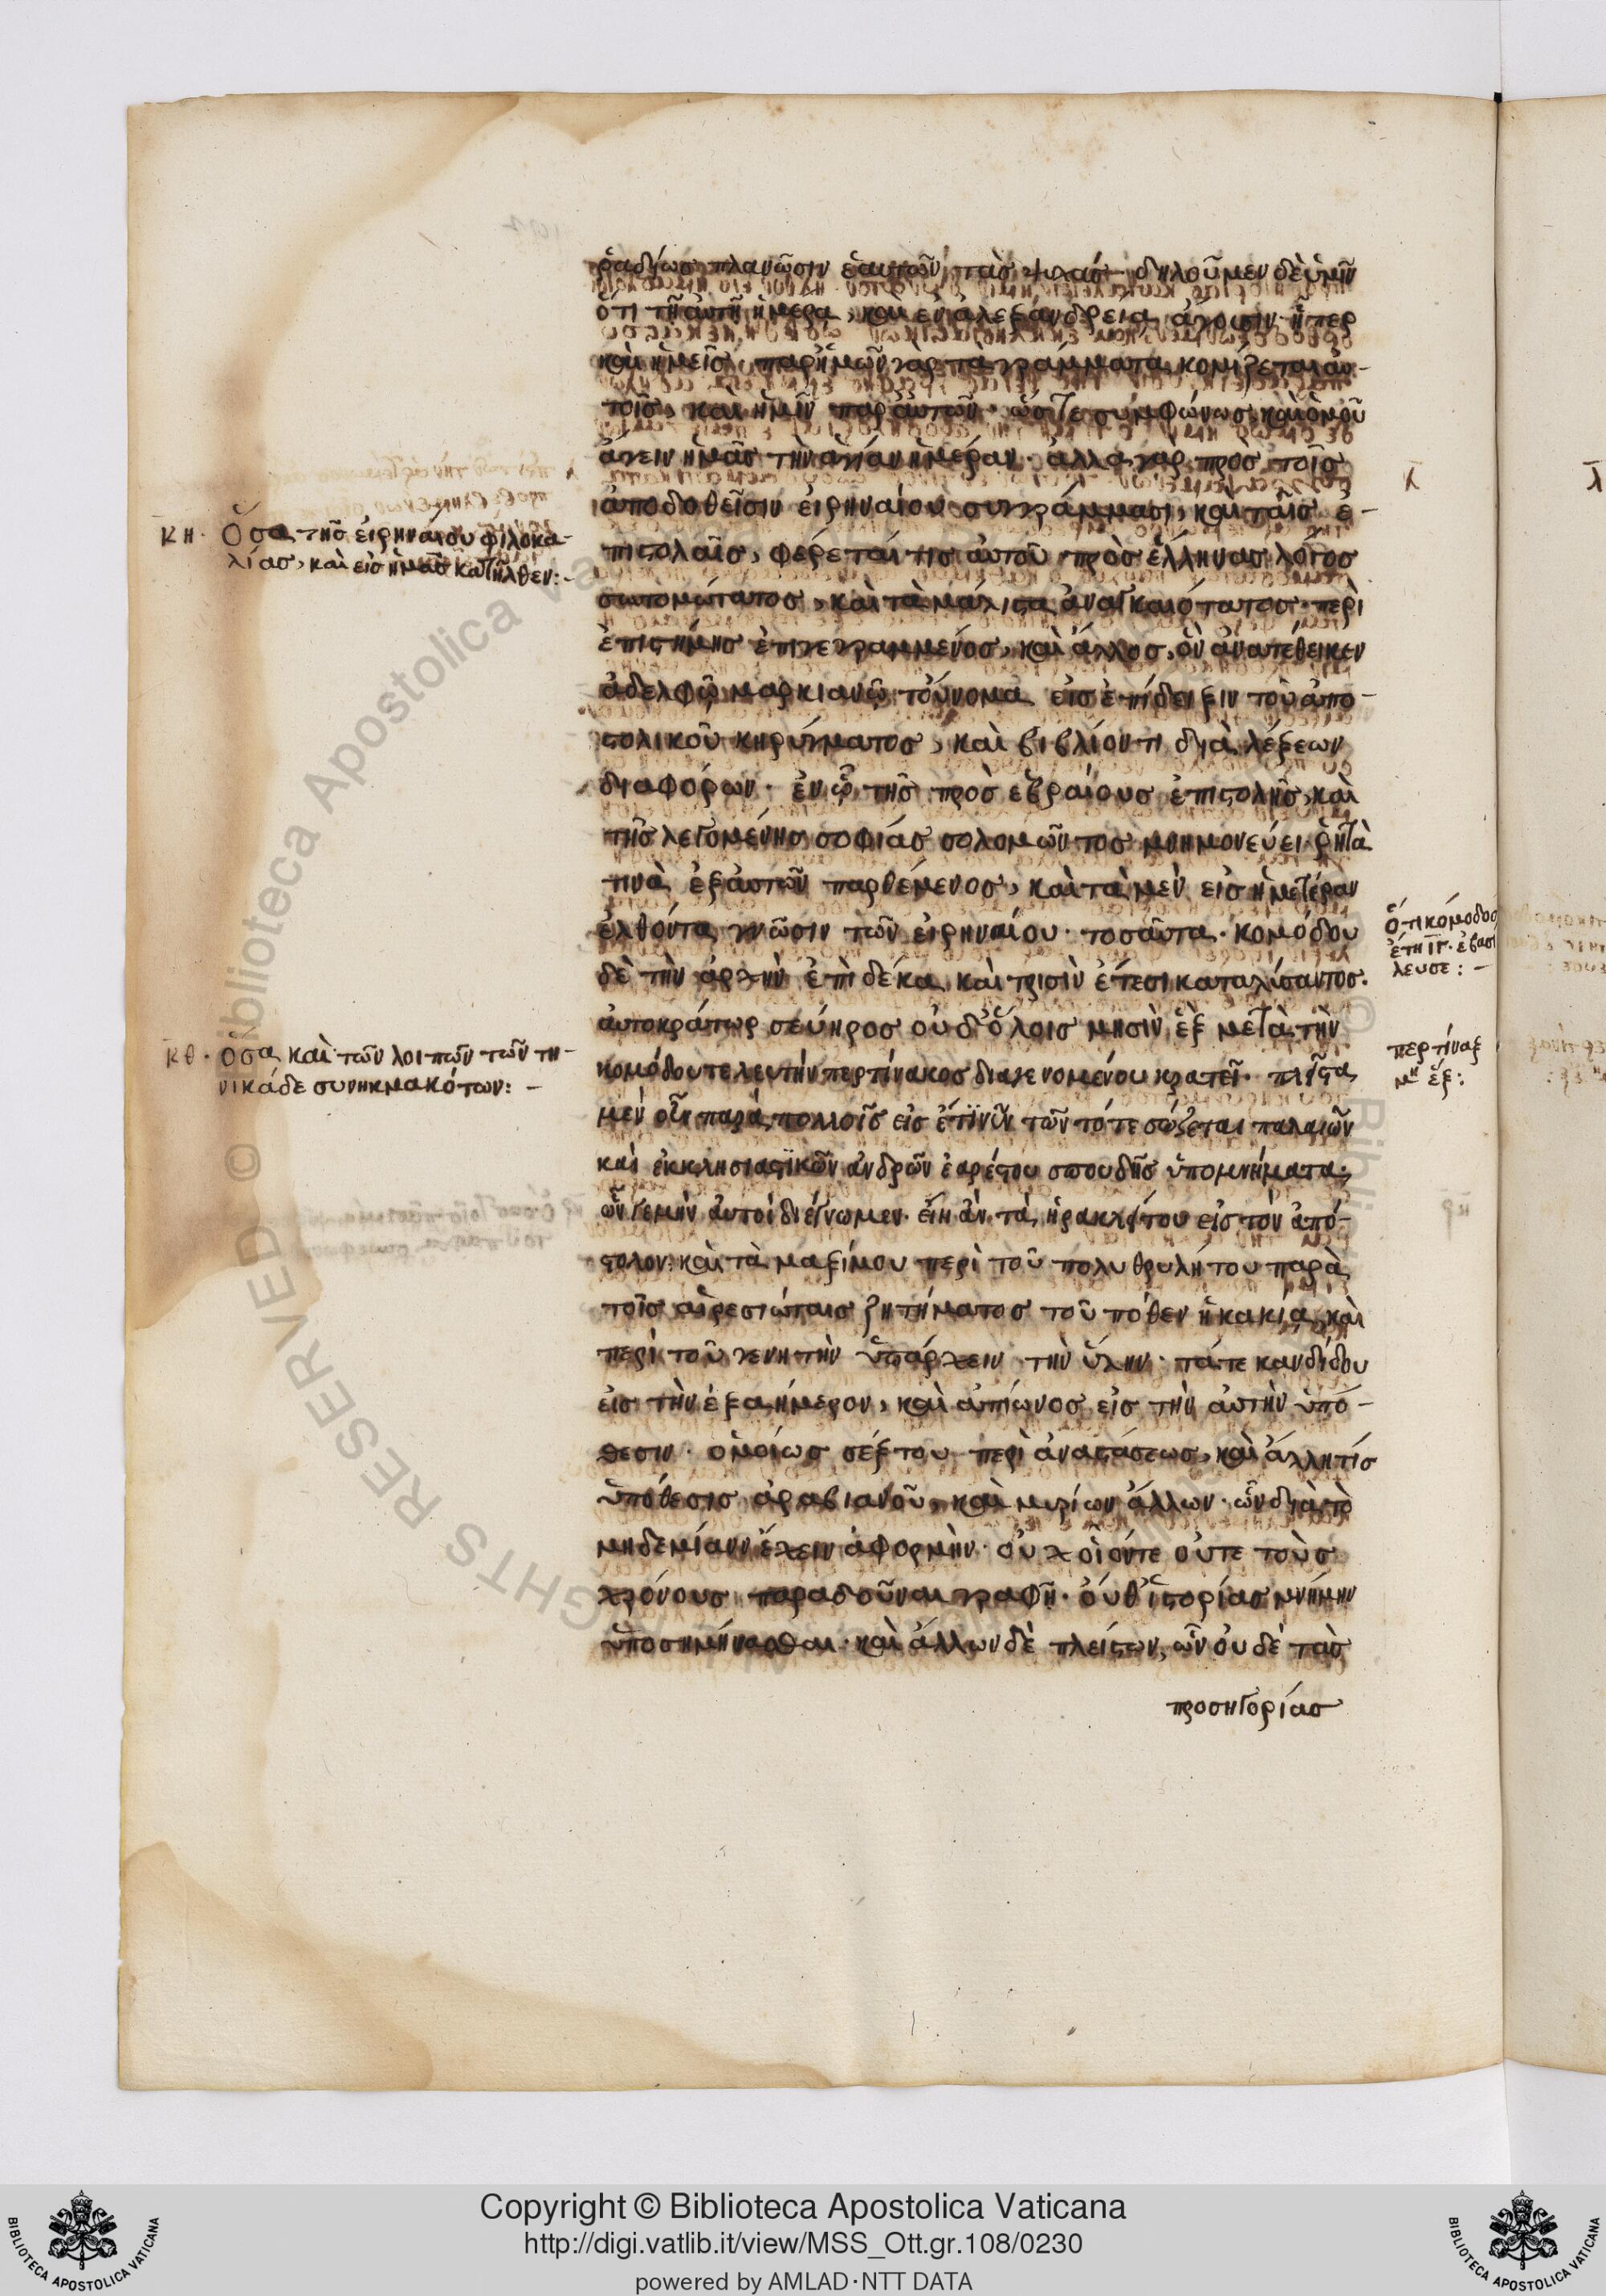 ῥαδίως πλανῶσιν ἑαυτῶν τὰς ψυχάς· δηλοῦμεν δὲ ὑμῖν
ὅτι τῆ αὐτῆ ἡμέρα, καὶ ἐν ἀλεξανδρεια ἄγουσιν ἥπερ
καὶ ἡμεῖς· παρ' ἡμῶν γαρ τα γράμματα κομίζεται αὐ-
τοῖς, καὶ ἡμῖν παρ' αὐτῶν· ὥστε συμφώνως καὶ ὁμοῦ
ἄγειν ἡμᾶς τὴν ἁγίαν ἡμέραν· ἀλλα γαρ προς τοῖς
ἀποδοθεῖσιν εἰρηναίου συγγράμμασι, καὶ ταῖς ἐ-
κη· Ὅσα τῆς εἰρηναίου φιλοκα-
λίας, καὶ εἰς ἡμᾶς κατῆλθεν:-
πιστολαῖς, φέρεταί τις αὐτοῦ πρὸς ἕλληνας λόγος
συντομώτατος, καὶ τὰ μαλιστα ἀναγκαιότατος· περὶ
ἐπιστήμης ἐπιγεγραμμένος, καὶ ἄλλος, ὃν ἀνατέθεικεν
ἀδελφῶ μαρκιανῶ τοὔνομα εἰς ἐπίδειξιν τοῦ ἀπο-
στολικοῦ κηρύγματος, καὶ βιβλίον τι διὰ λέξεων
διαφόρων· ἐν ὧ τῆς πρὸς ἑβραίους ἐπιστολῆς, καὶ
τῆς λεγομένης σοφίας σολομῶντος μνημονεύει· ῥητὰ
τινὰ ἐξ αὐτῶν παρθέμενος, καὶ τὰ μὲν εἰς ἡμετέραν
ἐλθόντα γνῶσιν τῶν εἰρηναίου· τοσαῦτα· κομόδου
ὅτι κόμοδος
ἔτη ιγ· ἐβασί
λευσε:-
δὲ τὴν ἀρχὴν ἐπὶ δέκα καὶ τρισὶν ἔτεσι καταλύσαντος.
αὐτοκράτωρ σεύηρος οὐδ' ὅλοις μησὶν ἓξ μετὰ τὴν
κθ· Ὅσα καὶ τῶν λοιπῶν τῶν τη-
νικάδε συνηκμακότων:-
περτίναξ
μη ἕξ:
κομόδου τελευτὴν περτίνακος διαγενομένου κρατεῖ· πλεῖστα
μὲν οὖν παρὰ πολλοῖς εἰς ἔτι νῦν τῶν τότε σώζεται παλαιῶν
καὶ ἐκκλησιαστικῶν ἀνδρῶν ἐαρέτου σπουδῆς ὑπομνήματα·
ὧν γε μὴν αὐτοὶ διέγνωμεν· εἴη ἂν τὰ ἡρακλείτου εἰς τὸν ἀπό-
στολον· καὶ τὰ μαξίμου περὶ τοῦ πολυθρυλήτου παρὰ
τοῖς αἱρεσιώταις ζητήματος τοῦ πόθεν ἡ κακία, καὶ
περὶ τοῦ γενητὴν ὑπάρχειν τὴν ὕλην· τά τε κανδίδου
εἰς τὴν ἑξαήμερον, καὶ ἀπίωνος εἰς τὴν αὐτὴν ὑπό-
θεσιν· ὁμοίως σέξτου περὶ ἀναστάσεως, καὶ ἄλλη τίς
ὑπόθεσις ἀραβιανοῦ, καὶ μυρίων ἄλλων· ὧν διὰ τὸ
μηδεμίανν ἔχειν ἀφορμὴν· οὐχ οἷόντε οὔτε τοὺς
χρόνους παραδοῦναι γραφῆ· οὔθ' ἱστορίας μνήμην
ὑποσημήνασθαι· καὶ ἄλλων δὲ πλείστων, ὧν οὐδὲ τὰς
προσηγορίας
λ
λ
Copyright © Biblioteca Apostolica Vaticana
http://digi.vatlib.it/view/MSS_Ott.gr.108/0230
powered by AMLAD·NTT DATA
BIBLIOTECA APOSTOLICA VATICANA
BIBLIOTECA APOSTOLICA VATICANA